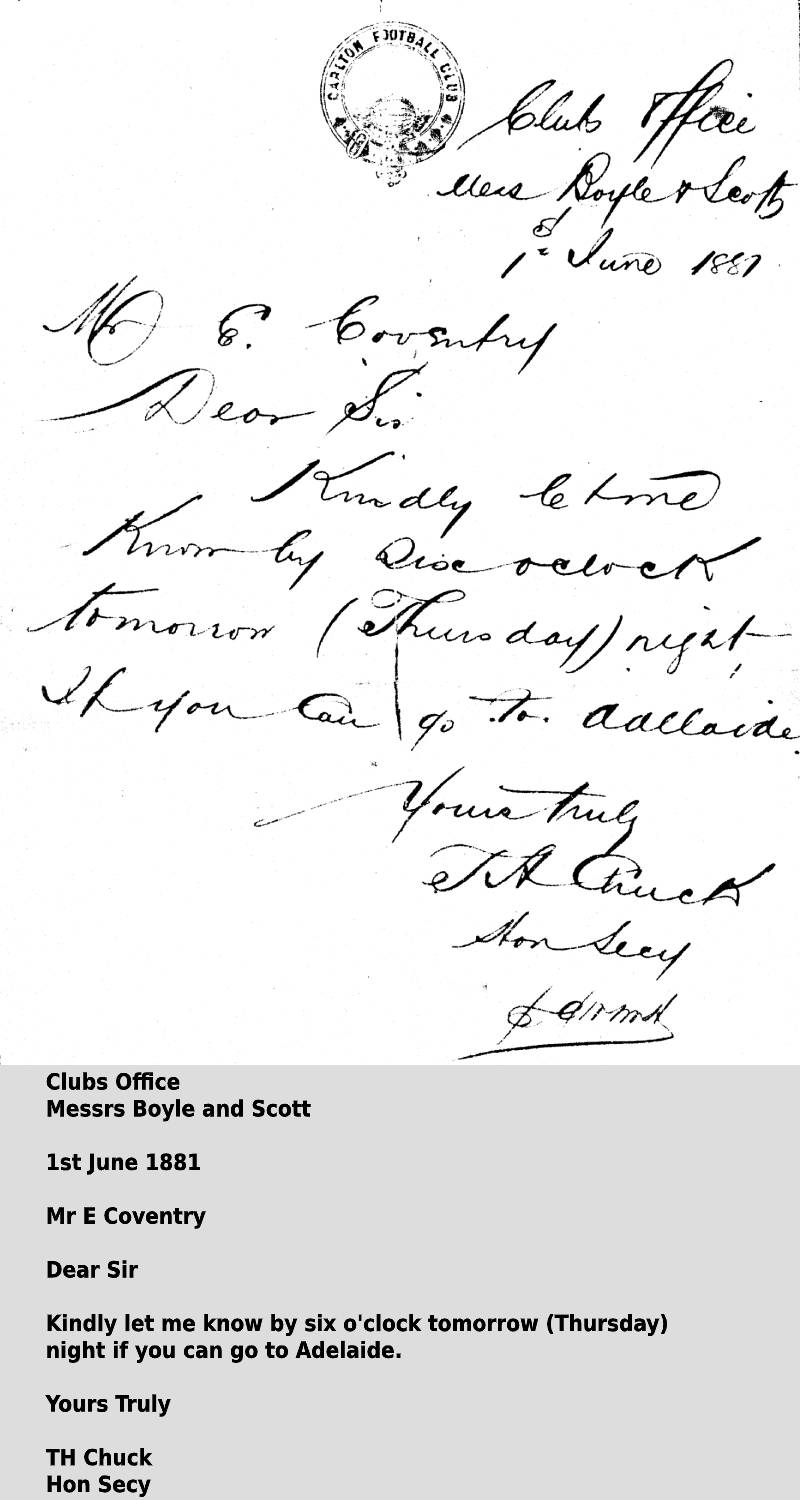 CARLTON FOOTBALL CLUB
Clubs Office
Messrs Boyle & Scott
1st June 1881
Mr E. Coventry
Dear Sir
Kindly let me
Know by Six oclock
tomorrow (Thursday) night
If you can go to Adelaide.
Yours truly
TH Chuck
Hon Secy
Clubs Office
Messrs Boyle and Scott
1st June 1881
Mr E Coventry
Dear Sir
Kindly let me know by six o'clock tomorrow (Thursday)
night if you can go to Adelaide.
Yours Truly
TH Chuck
Hon Secy